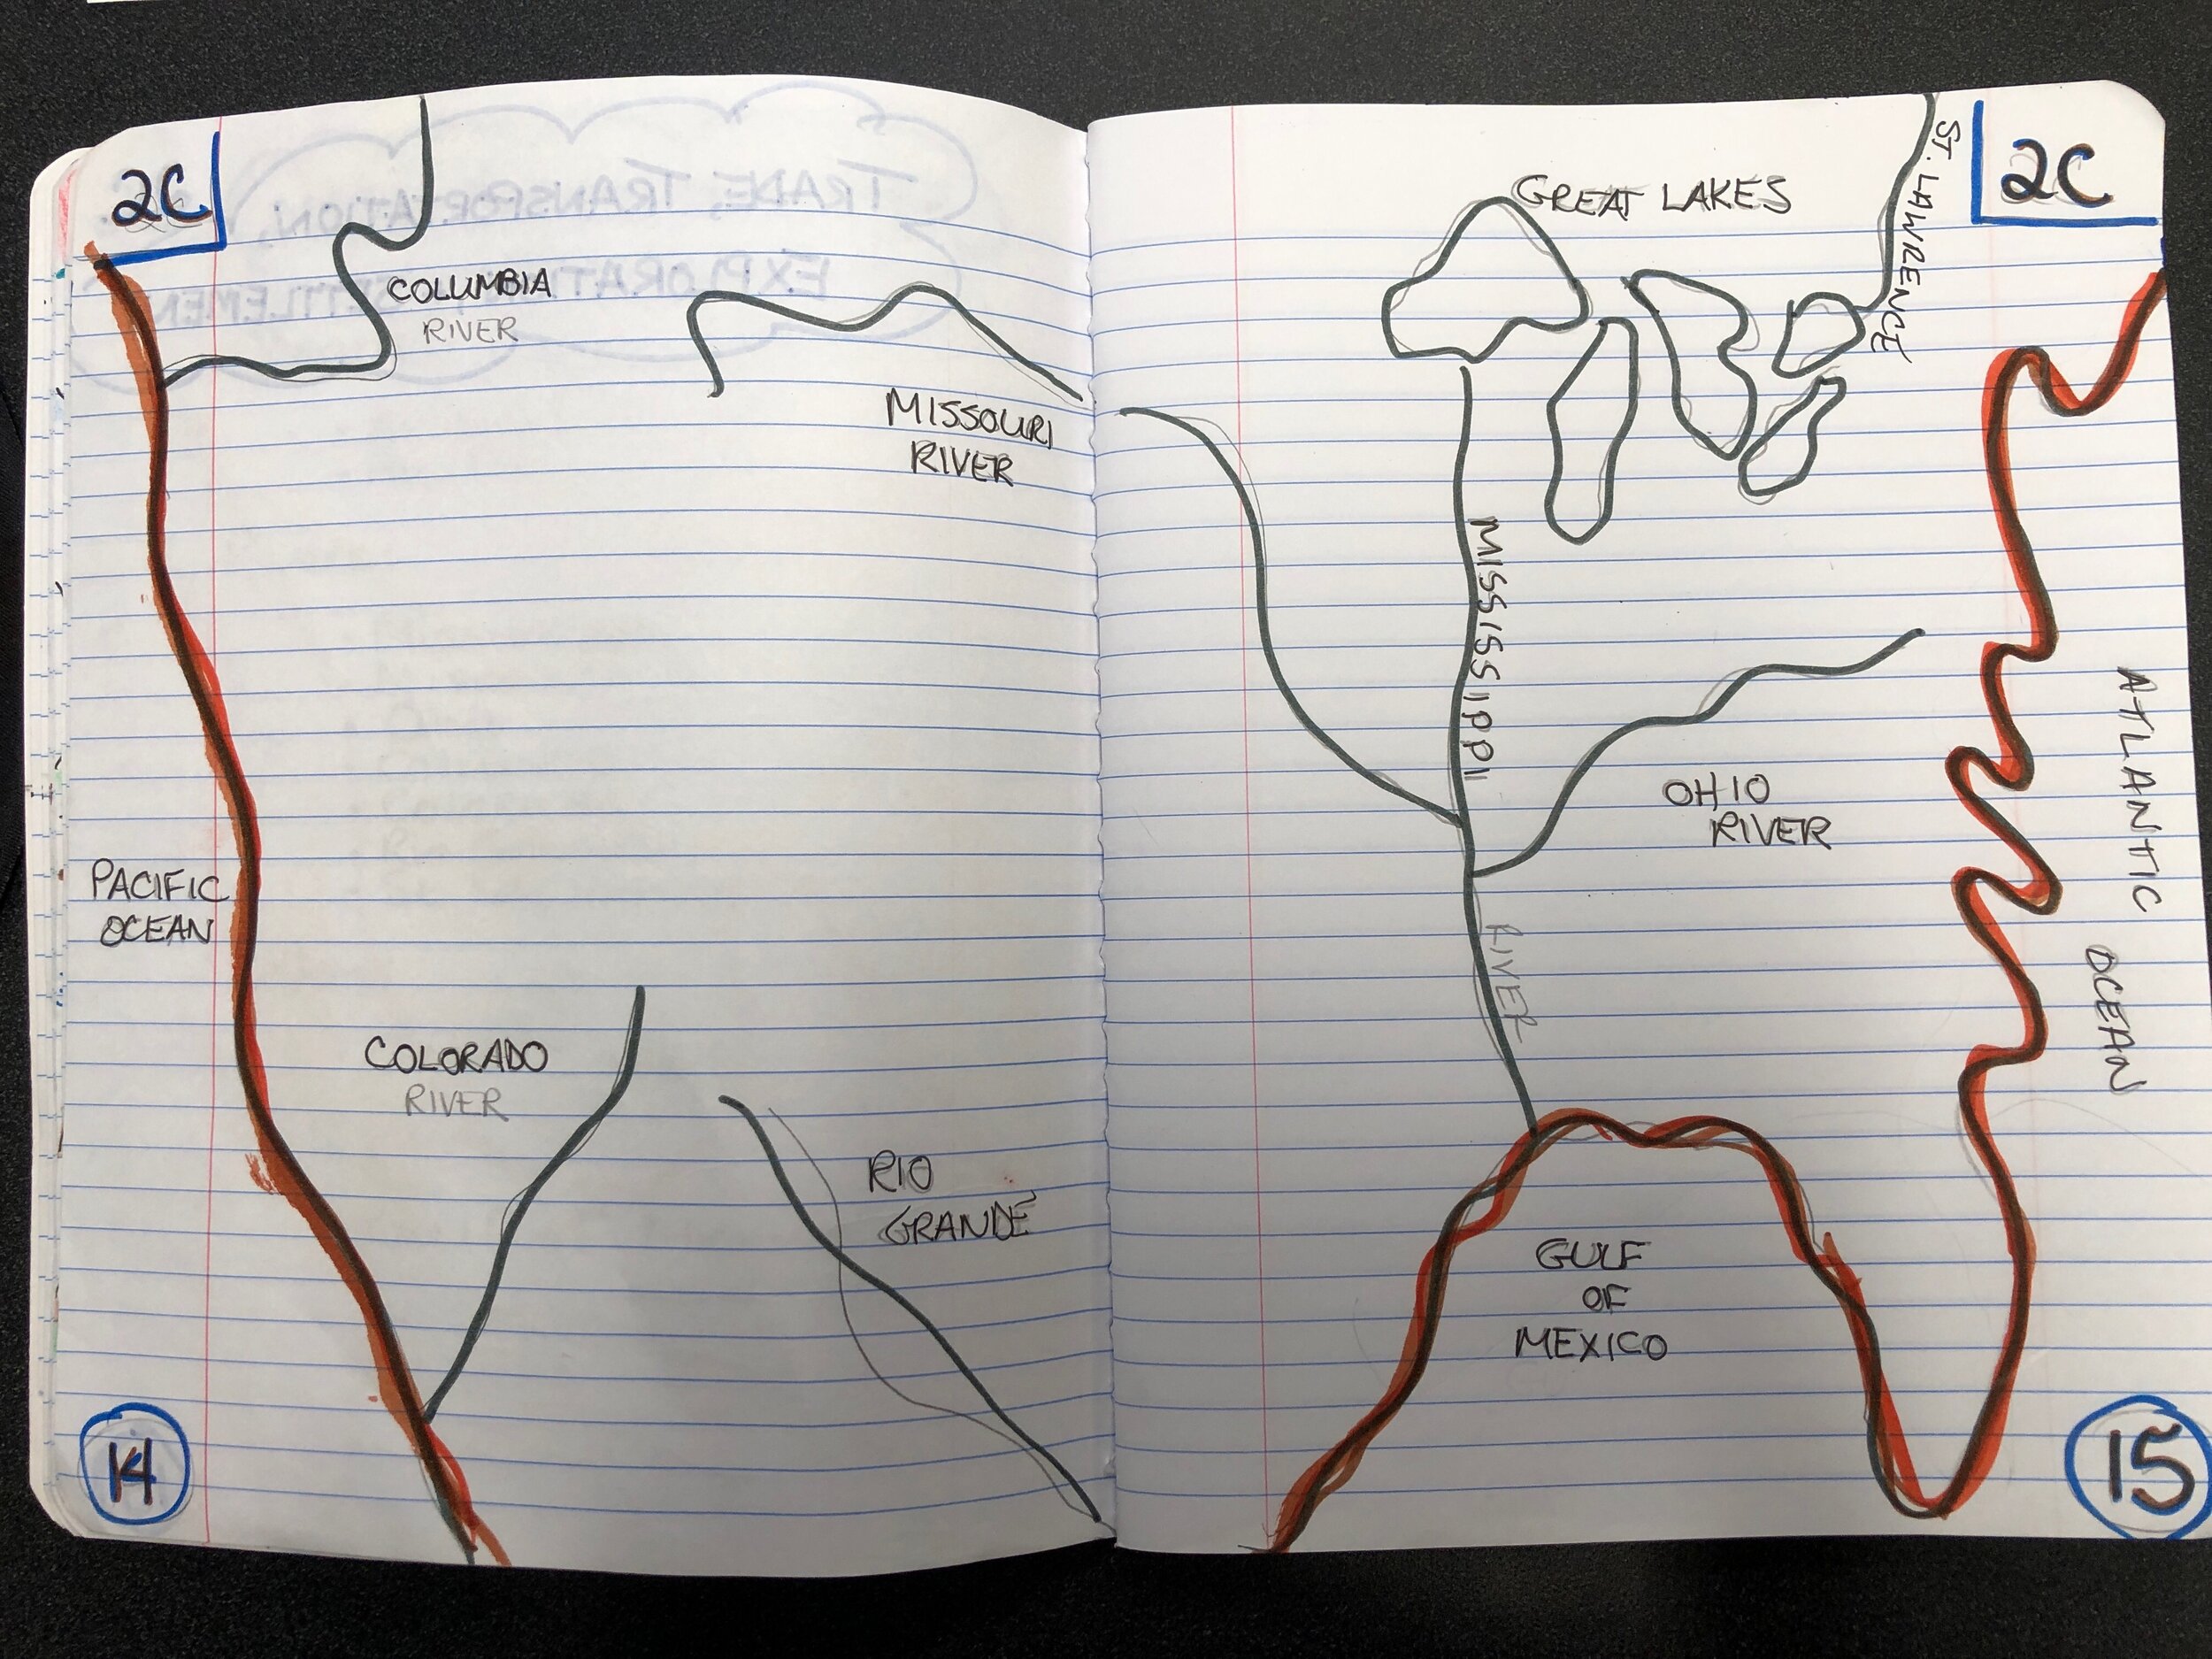 2C
COLUMBIA
RIVER
MISSOURI
RIVER
PACIFIC
OCEAN
COLORADO
RIVER
RIO
GRANDE
14
2C
GREAT LAKES
ST. LAWRENCE
MISSISSIPPI
RIVER
OHIO
RIVER
ATLANTIC
OCEAN
GULF
OF
MEXICO
15
TRADE, TRANSPORTATION,